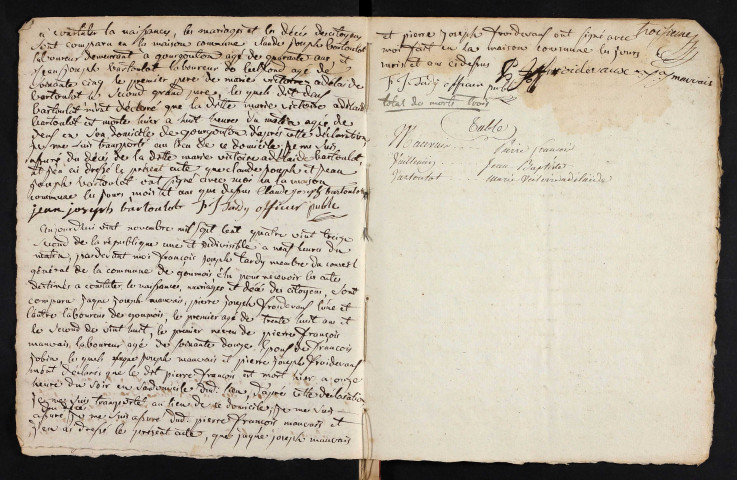 a constater la naissances, les mariages et les décès des citoyens
sont comparu en la maison commune claude joseph bartoulot
laboureur demeurant a gourgouton agé de quarante ans et
jean joseph bartoulot laboureur de agé de
soixante cinq le premier pere de marie victoire adelaide
bartoulot le second grand pere, les quels dit
bartoulot m'ont déclaré que la ditte marie victoire adelaide
bartoulot est morte hier a huit heures du matin agée de
neuf en son domicile de gourgouton d'après cette déclaration
je me suis transporté au lieu de ce domicile je me suis
assuré du décès de la ditte marie victoire adelaide bartoulot
et j'en ai dressé le présent acte que claude joseph et jean
joseph bartoulot ont signé avec moi en la maison
commune les jours mois et an que dessus claude joseph bartoulot
jean joseph bartoulot P. J. Tardy officier public
aujourdhui vint novembre mil sept cent quatre vint treize
second de la republique une et indivisible a neuf heures du
matin, pardevant moi François joseph tardy membre du conseil
général de la commune de goumois élu pour recevoir les actes
destinés a constater les naissances, mariages et décés des citoyens, sont
comparu jaque joseph mauvais, pierre joseph froidevaux l'une et
l'autre laboureur des goumois, le premier agé de trente huit ans et
le second de vint huit, le premier neveu de pierre françois
mauvais, laboureur agé de soixantes douze époux de françois
jobin, les quels jaque joseph mauvais et pierre joseph froidevaux
m'ont déclarés que le dit pierre françois est mort hier a onze
heure du soir en son domicile dud. lieu, d'après cette déclaration
je me suis transporté au lieu de ce domicile, je me suis
assuré du décès dud. pierre françois mauvais et
j'en ai dressé le présent acte, que jaque joseph mauvais
et pierre joseph froidevaux ont signé avec
moi fait en la maison commune les jours
mois et an ci dessus
P. J. Tardy officier public froidevaux mauvais
total des morts trois
Table
Mauvais Pierre françois
Vuillemin Jean Baptiste
Bartoulot marie victoire adelaide